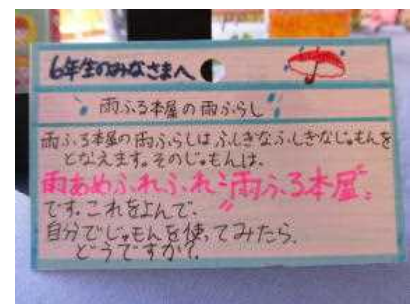 6年生のみなさまへ
雨ふる本屋の雨ふらし
雨ふる本屋の雨ふらしはふしぎなふしぎなじゅもんを
となえます。そのじゅもんは、
雨あめふれふれ〝雨ふる本屋〟
です。これをよんで、
自分でじゅもんを使ってみたら、
どうですか?